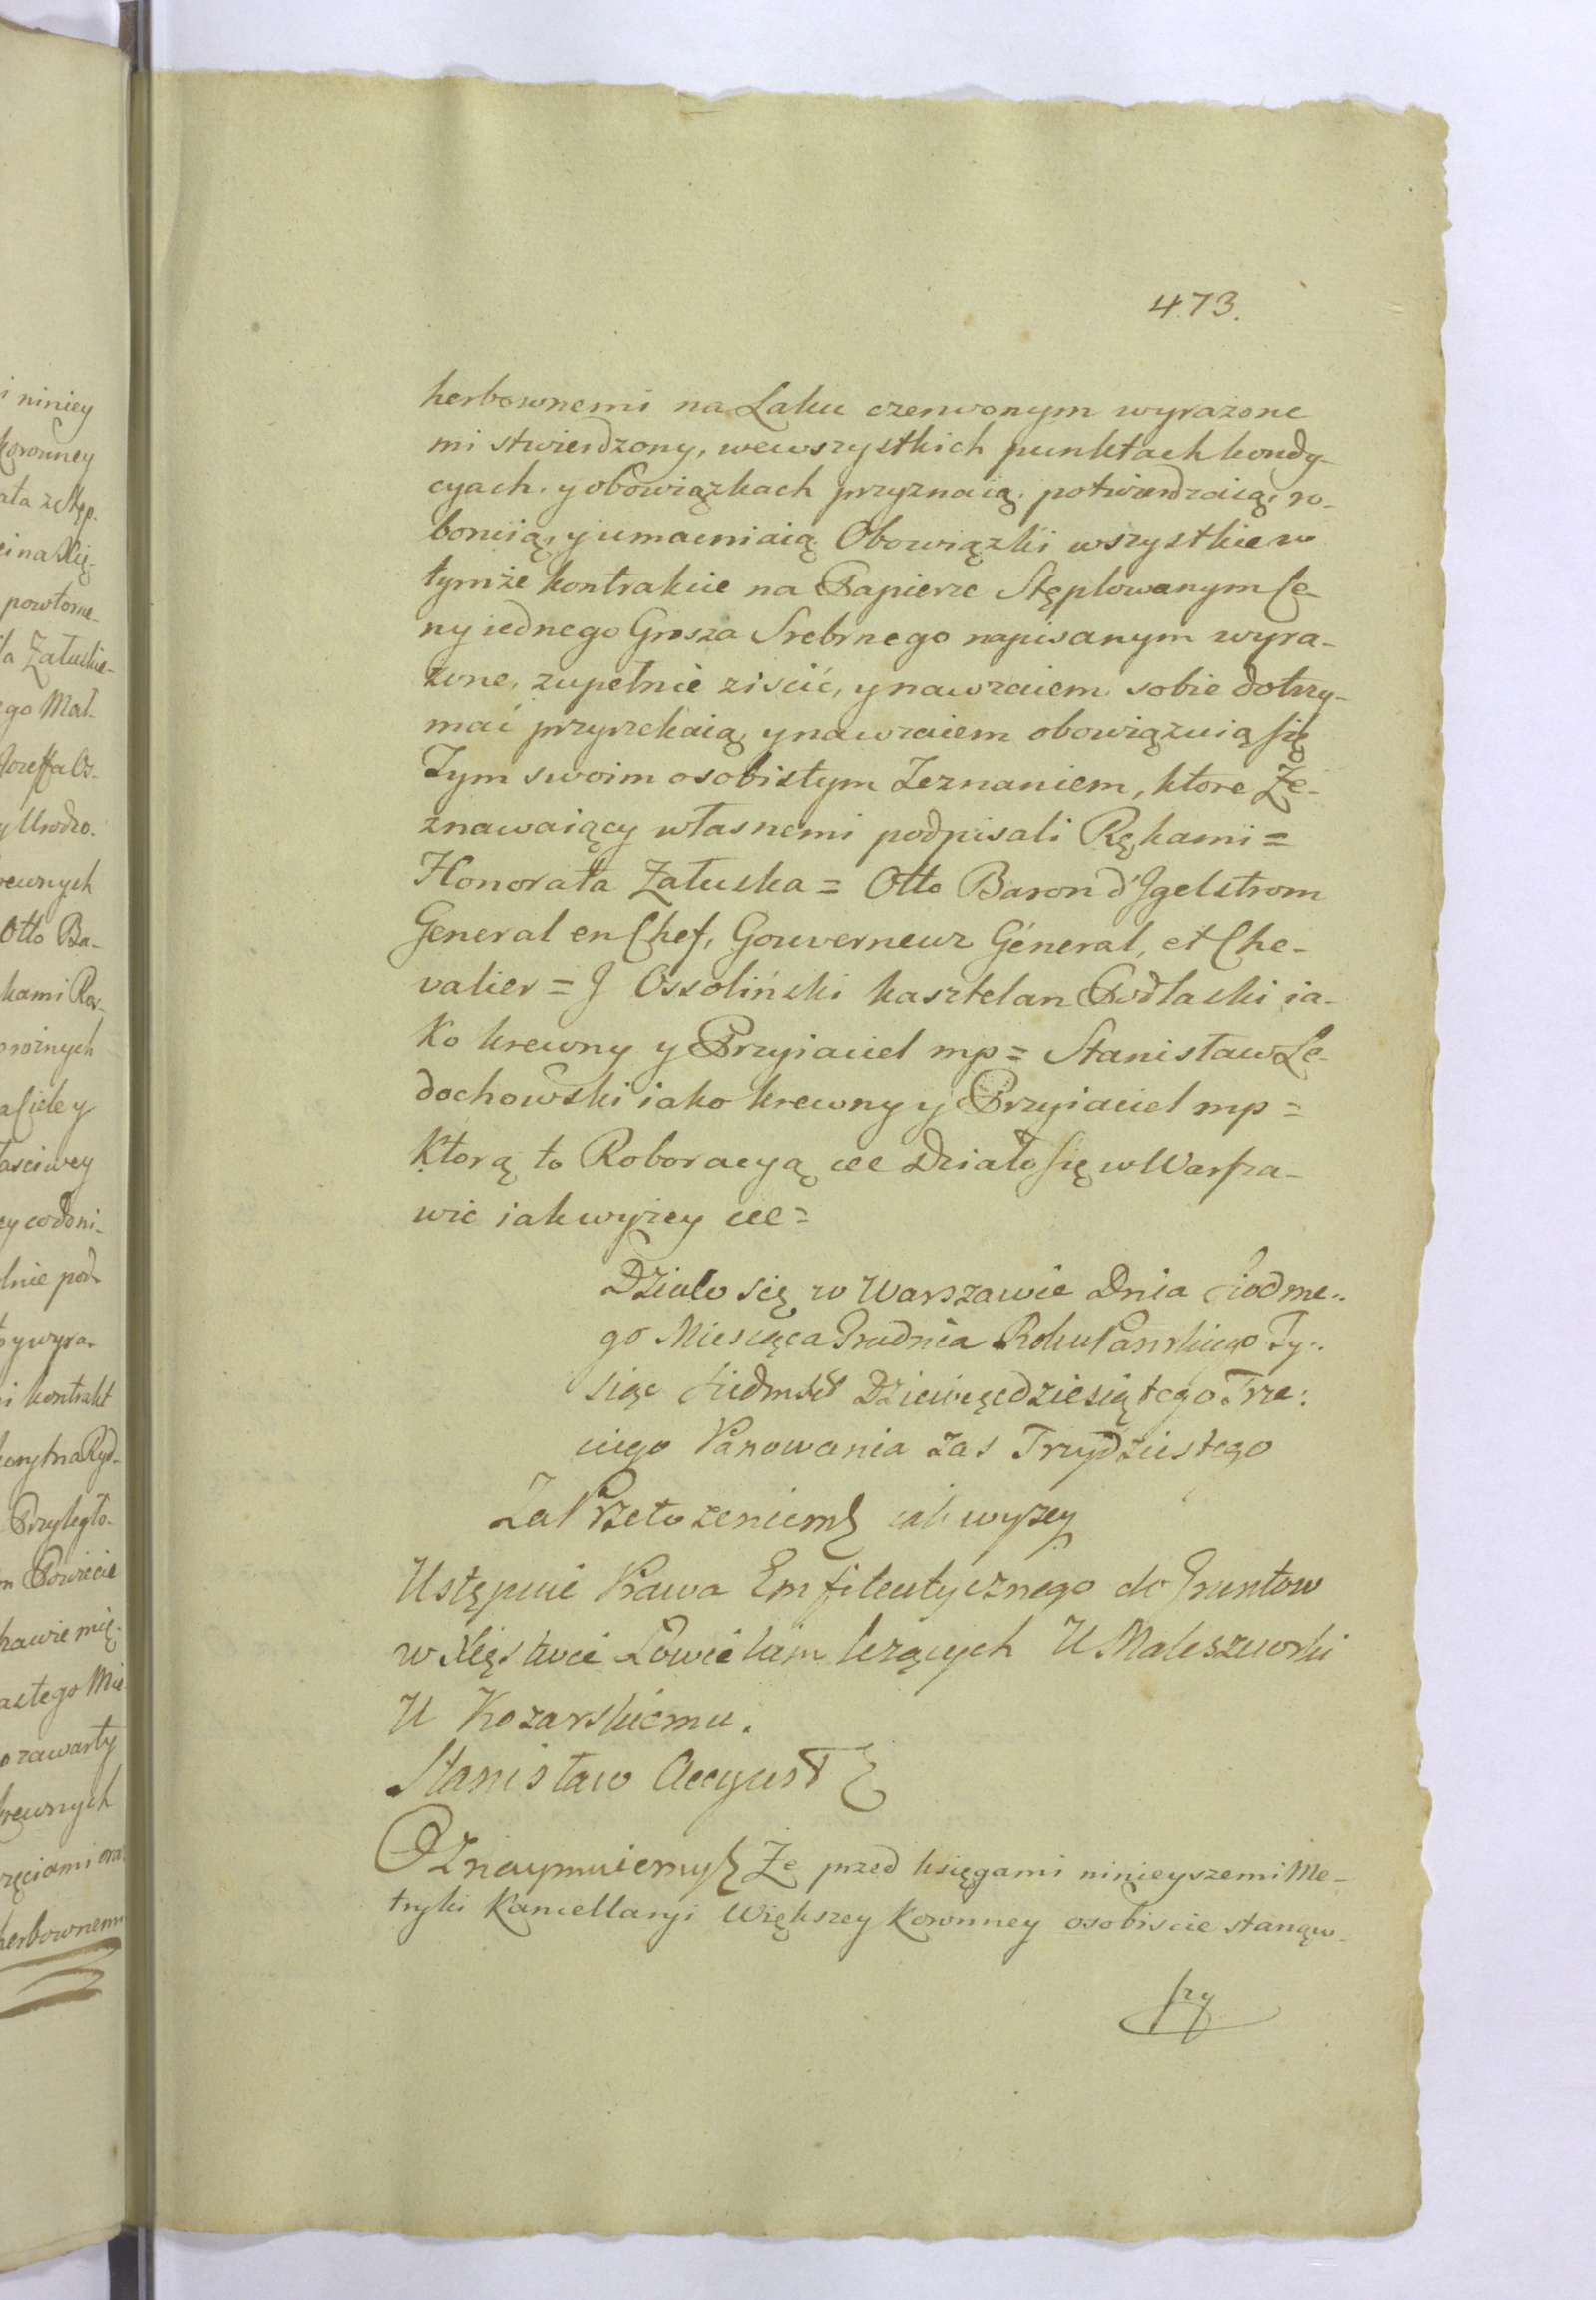 473.
herbownemi na Laku czerwonym wyrażone
mi stwierdzony, wewszystkich punktach kondy-
cyach. y obowiązkach przyznaią. potwierdzaią, ro-
boruią, y umacniaią Obowiązki wszystkie w
tymże kontrakcie na Papierze Stęplowanym Ce-
ny iednego Grosza Srebrnego napisanym wyra-
żone, zupełnie ziscić, y nawzaiem sobie dotrzy-
mać przyrzekaią, y nawzaiem obowiązuią się
Tym swoim osobistym Zeznaniem, ktore Ze-
znawaiący własnemi podpisali Rękami =
Honorata Załuska = Otto Baron d'Igelstrom
General en Chef, Gouverneur Géneral, et Che-
valier = J Ossoliński kasztelan Podlaski ia-
ko krewny y Przyiaciel mp = Stanisław Le-
dochowski iako krewny y Przyiaciel mp =
Ktorą to Roboracyą etc Działo się w Warsza-
wie iak wyżey etc =
Działo się w Warszawie Dnia Siodme-
go Miesiąca Grudnia Roku Panskiego Ty-
siąc Siedmset Dziewięcdziesiątego Trze:
ciego Panowania Zas Trzydziestego
Za Przełożeniem iak wyżey
Ustępuie Prawa Emfiteutycznego do Gruntow
w Xięstwie Łowickim leżących U Maleszewski
U Kozarskiemu.
Stanisław August
Oznaymuiemy Że przed księgami ninieyszemi Me-
tryki Kancellaryi Większey Koronney osobiscie stanąw-
szy
i niniey
Koronney
powtorne
Załuskie-
ego Mał-
Jozeffa Os-
y Urodzo.
krewnych
Otto Ba-
kami Roz-
roznych
lnie pod-
i kontrakt
Przyległo-
m Powiecie
o zawarty
krewnych
herbownemi